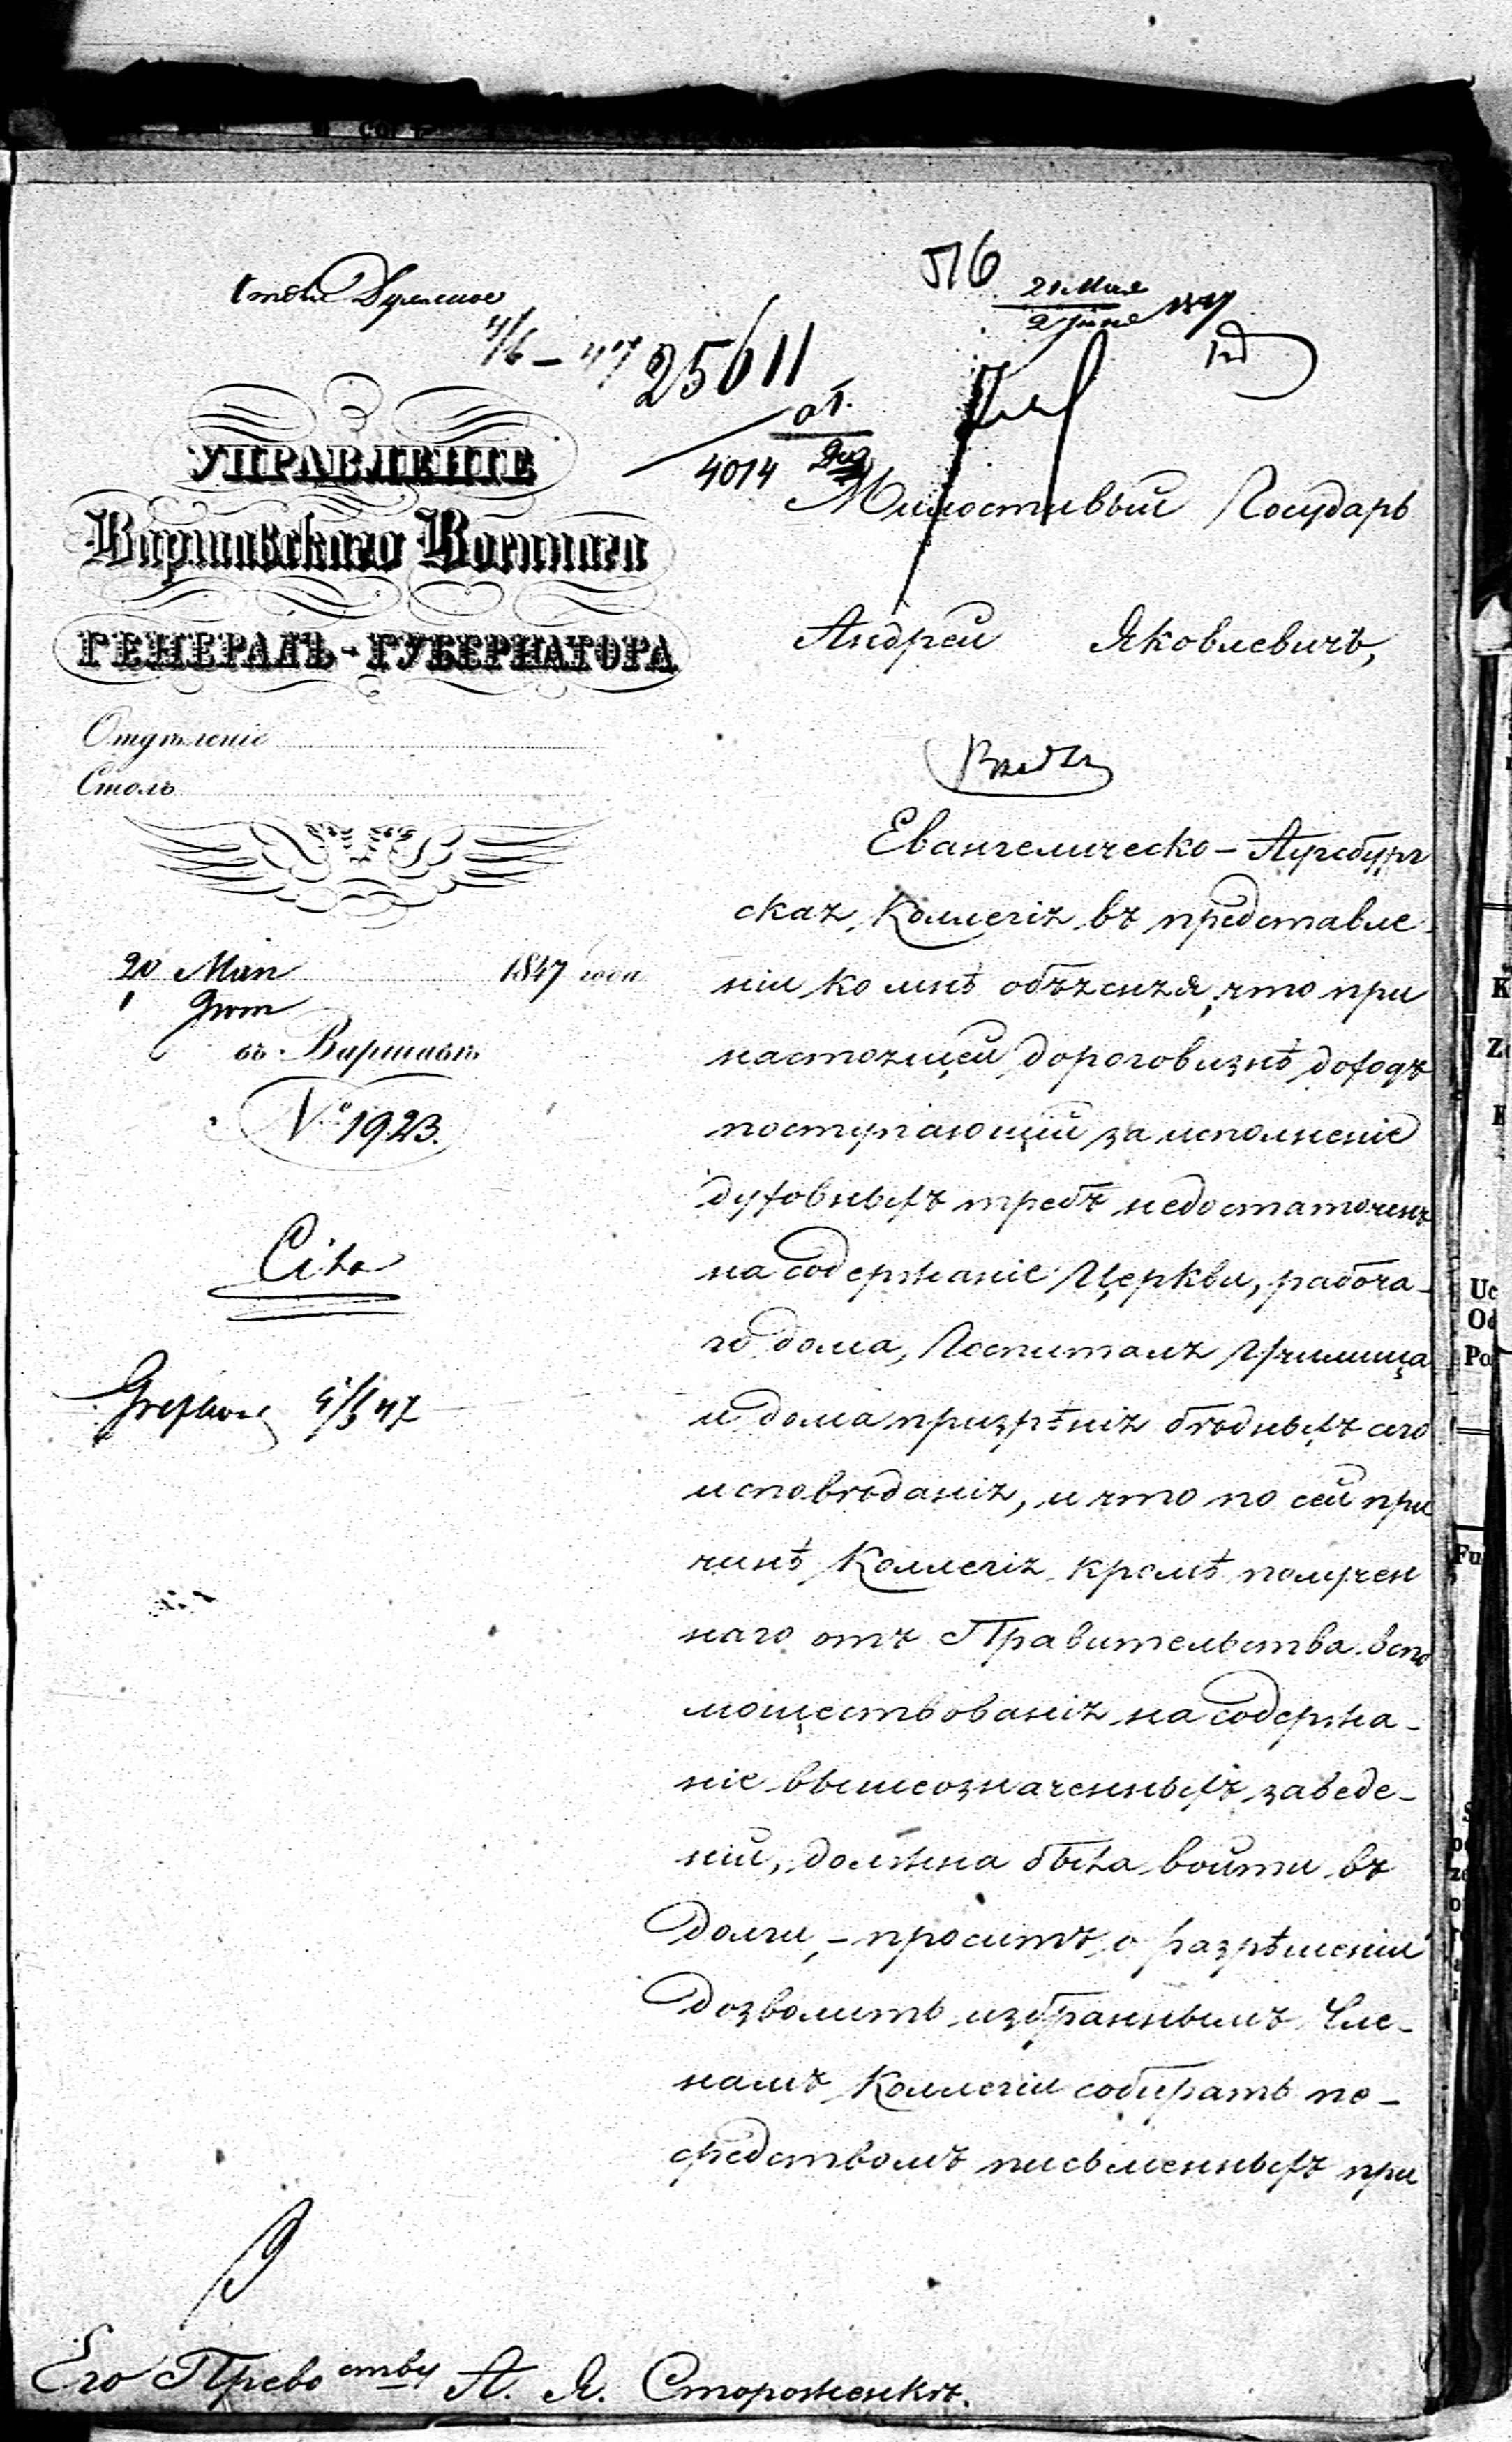 516
21 Мая
2 Июня 1847
4/6 – 47
25611
4014
УПРАВЛЕНІЕ
Варшавскаго Военнаго
ГЕНЕРАЛЪ-ГУБЕРНАТОРА
Отдѣленіе
Столъ
20 Мая 1847 года
1 Іюня
въ Варшавѣ
№ 1923.
Cito
Милостивый Государь
Андрей Яковлевичъ,
Евангелическо-Аугсбург
ская Коллегія въ представле-
ніи ко мнѣ объясняя, что при
настоящей дороговизнѣ доходъ
поступающій за исполненіе
духовныхъ требъ недостаточенъ
на содержаніе Церкви, рабоча-
го дома, Госпиталя Училища
и дома призрѣнія бѣдныхъ сего
исповѣданія, и что по сей при
чинѣ Коллегія кромѣ получен
наго отъ Правительства вспо
моществованія на содержа-
ніе вышеозначенныхъ заведе-
ній, должна была войти въ
долги, – проситъ о разрѣшеніи
дозволить избраннымъ Чле-
намъ Коллегіи собирать по-
средствомъ письменныхъ при
Его Превоству А. Я. Стороженкѣ.